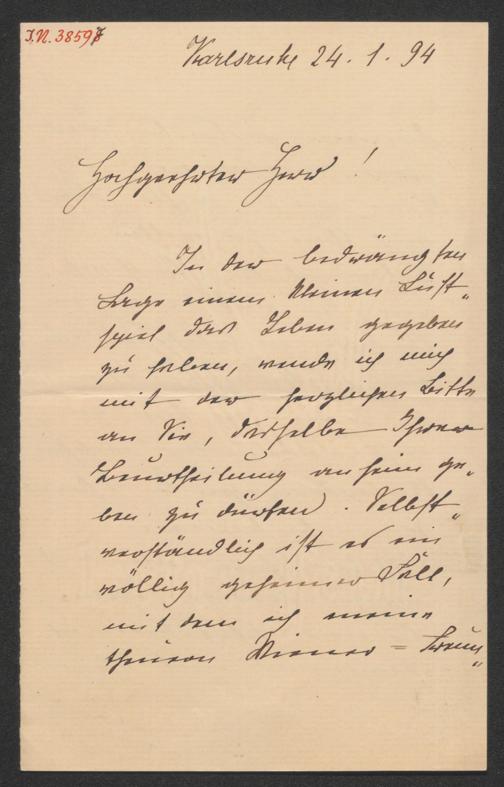 I.N. 38597
Karlsruhe 24. 1. 94
Hochgeehrter Herr!
In der bedrängten
Lage einem kleinen Lust„
spiel das Leben gegeben
zu haben, wende ich mich
mit der herzlichen Bitte
an Sie, dasselbe Ihrer
Beurtheilung anheim ge„
ben zu dürfen. Selbst„
verständlich ist es ein
völlig geheimer Fall,
mit dem ich meine
theuren Wiener =